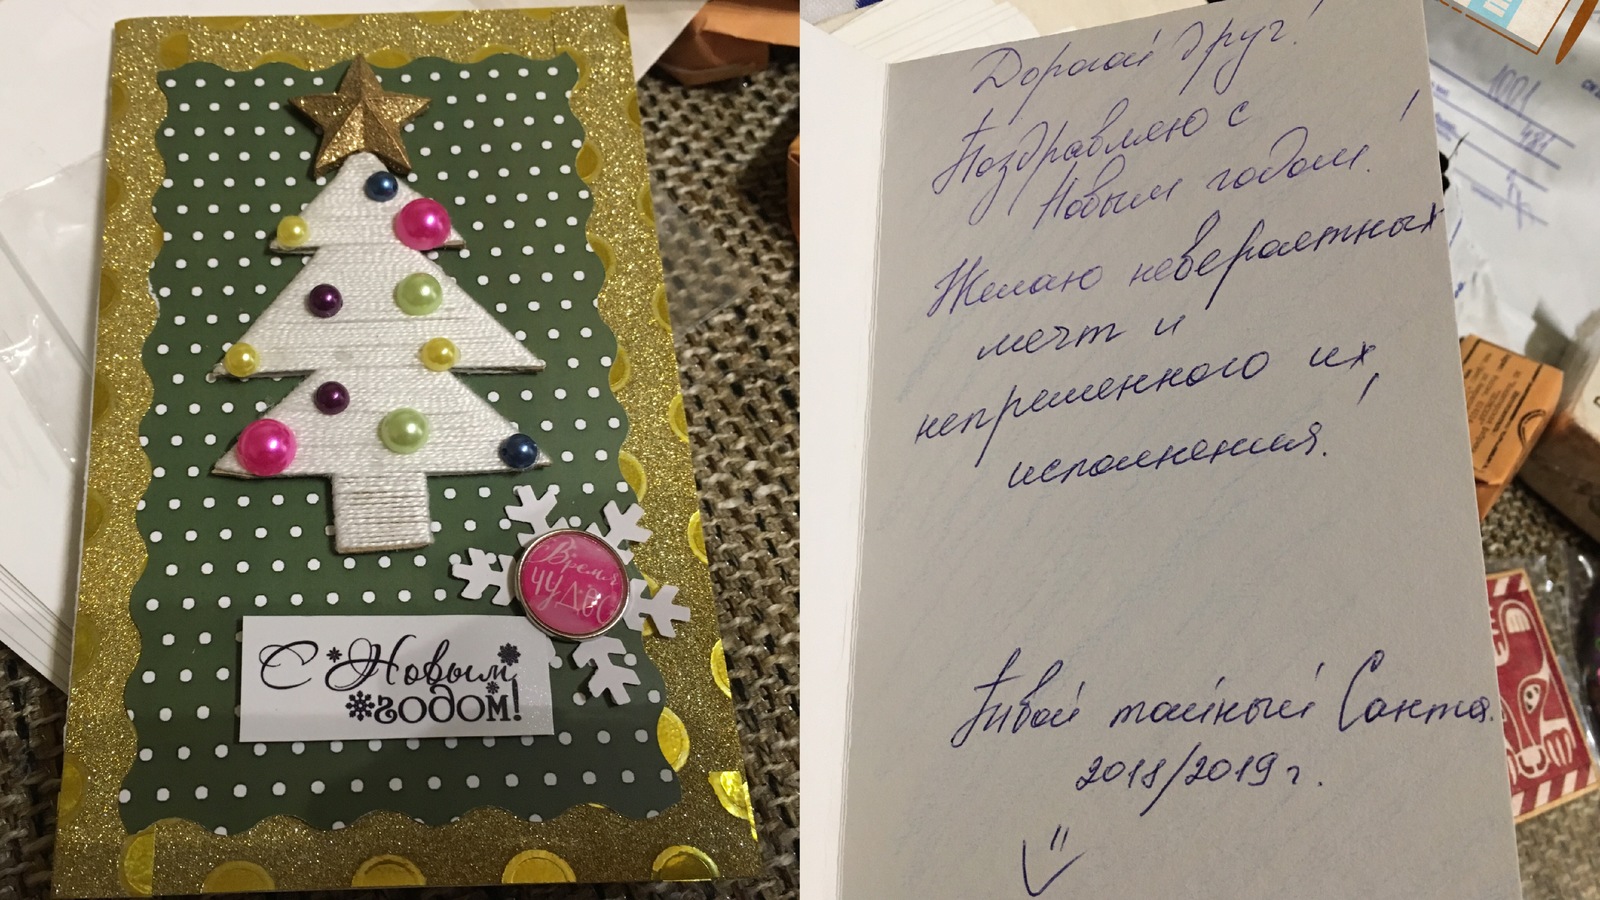 Время
ЧУДЕС
С Новым
годом!
Дорогой друг!
Поздравляю с
Новым годом!
Желаю невероятных
мечт и
непременного их
исполнения!
Твой тайный Санта.
2018/2019 г.
1001
481